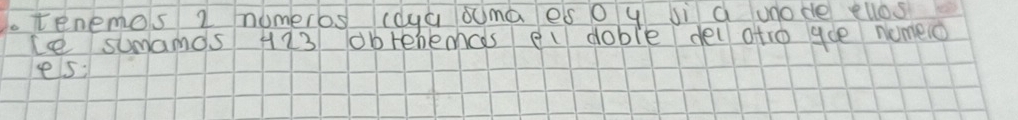 . tenemos 2 numeros cuya suma es 0 y si a uno de ellos
le sumamos 423 obtenemos el doble del otro que numero
es: